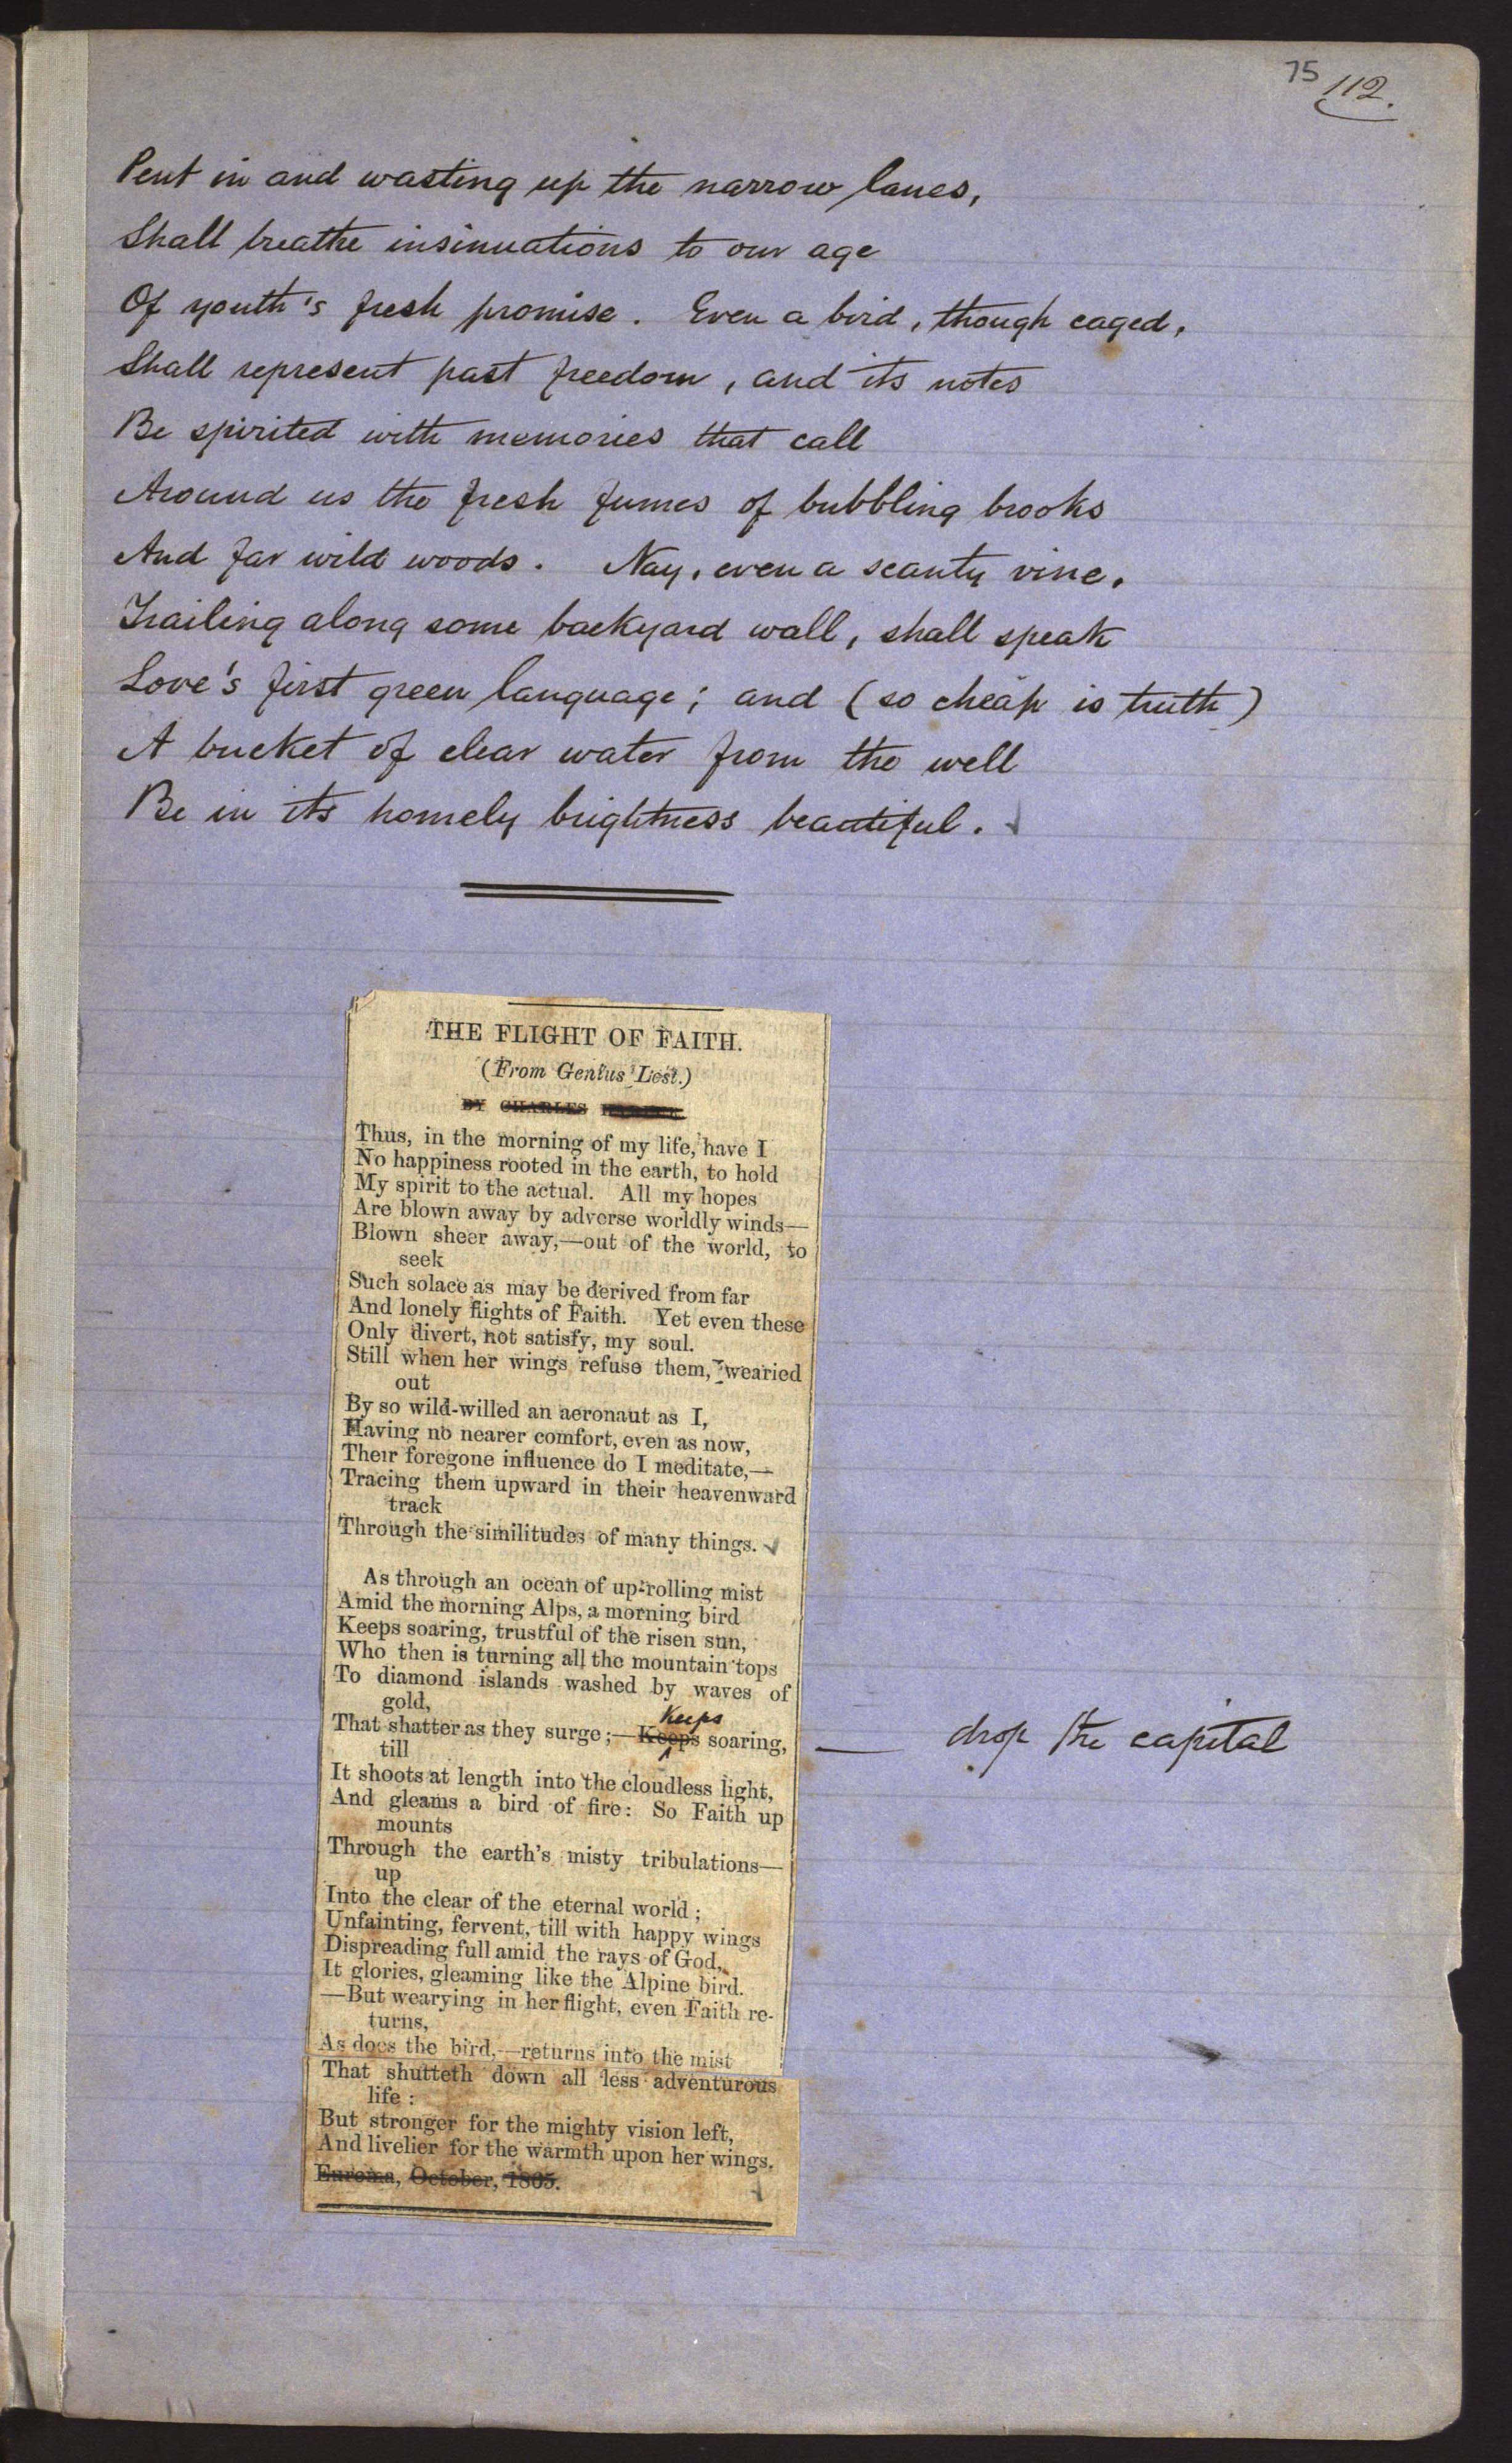 75 112.
Pent in and wasting up the narrow lanes,
Shall breathe insinuations to our age
Of youth's fresh promise. Even a bird, though caged,
Shall represent past freedom, and its notes
Be spirited with memories that call
Around us the fresh fumes of bubbling brooks
And far wild woods. Nay, even a scanty vine,
Trailing along some backyard wall, shall speak
Love's first green language; and (so cheap is truth)
A bucket of clear water from the well
Be in its homely brightness beautiful.
THE FLIGHT OF FAITH.
(From Genius Lost.)
BY CHARLES
Thus, in the morning of my life, have I
No happiness rooted in the earth, to hold
My spirit to the actual. All my hopes
Are blown away by adverse worldly winds—
Blown sheer away,—out of the world, to
seek
Such solace as may be derived from far
And lonely flights of Faith. Yet even these
Only divert, not satisfy, my soul.
Still when her wings refuse them, wearied
out
By so wild-willed an aeronaut as I,
Having no nearer comfort, even as now,
Their foregone influence do I meditate,—
Tracing them upward in their heavenward
track
Through the similitudes of many things.
As through an ocean of up-rolling mist
Amid the morning Alps, a morning bird
Keeps soaring, trustful of the risen sun,
Who then is turning all the mountain tops
To diamond islands washed by waves of
gold,
keeps
That shatter as they surge;—Keeps soaring, — drop the capital
till
It shoots at length into the cloudless light,
And gleams a bird of fire: So Faith up
mounts
Through the earth's misty tribulations—
up
Into the clear of the eternal world;
Unfainting, fervent, till with happy wings
Dispreading full amid the rays of God,
It glories, gleaming like the Alpine bird.
—But wearying in her flight, even Faith re-
turns,
As does the bird,—returns into the mist
That shutteth down all less adventurous
life:
But stronger for the mighty vision left,
And livelier for the warmth upon her wings.
Euroma, October, 1865.